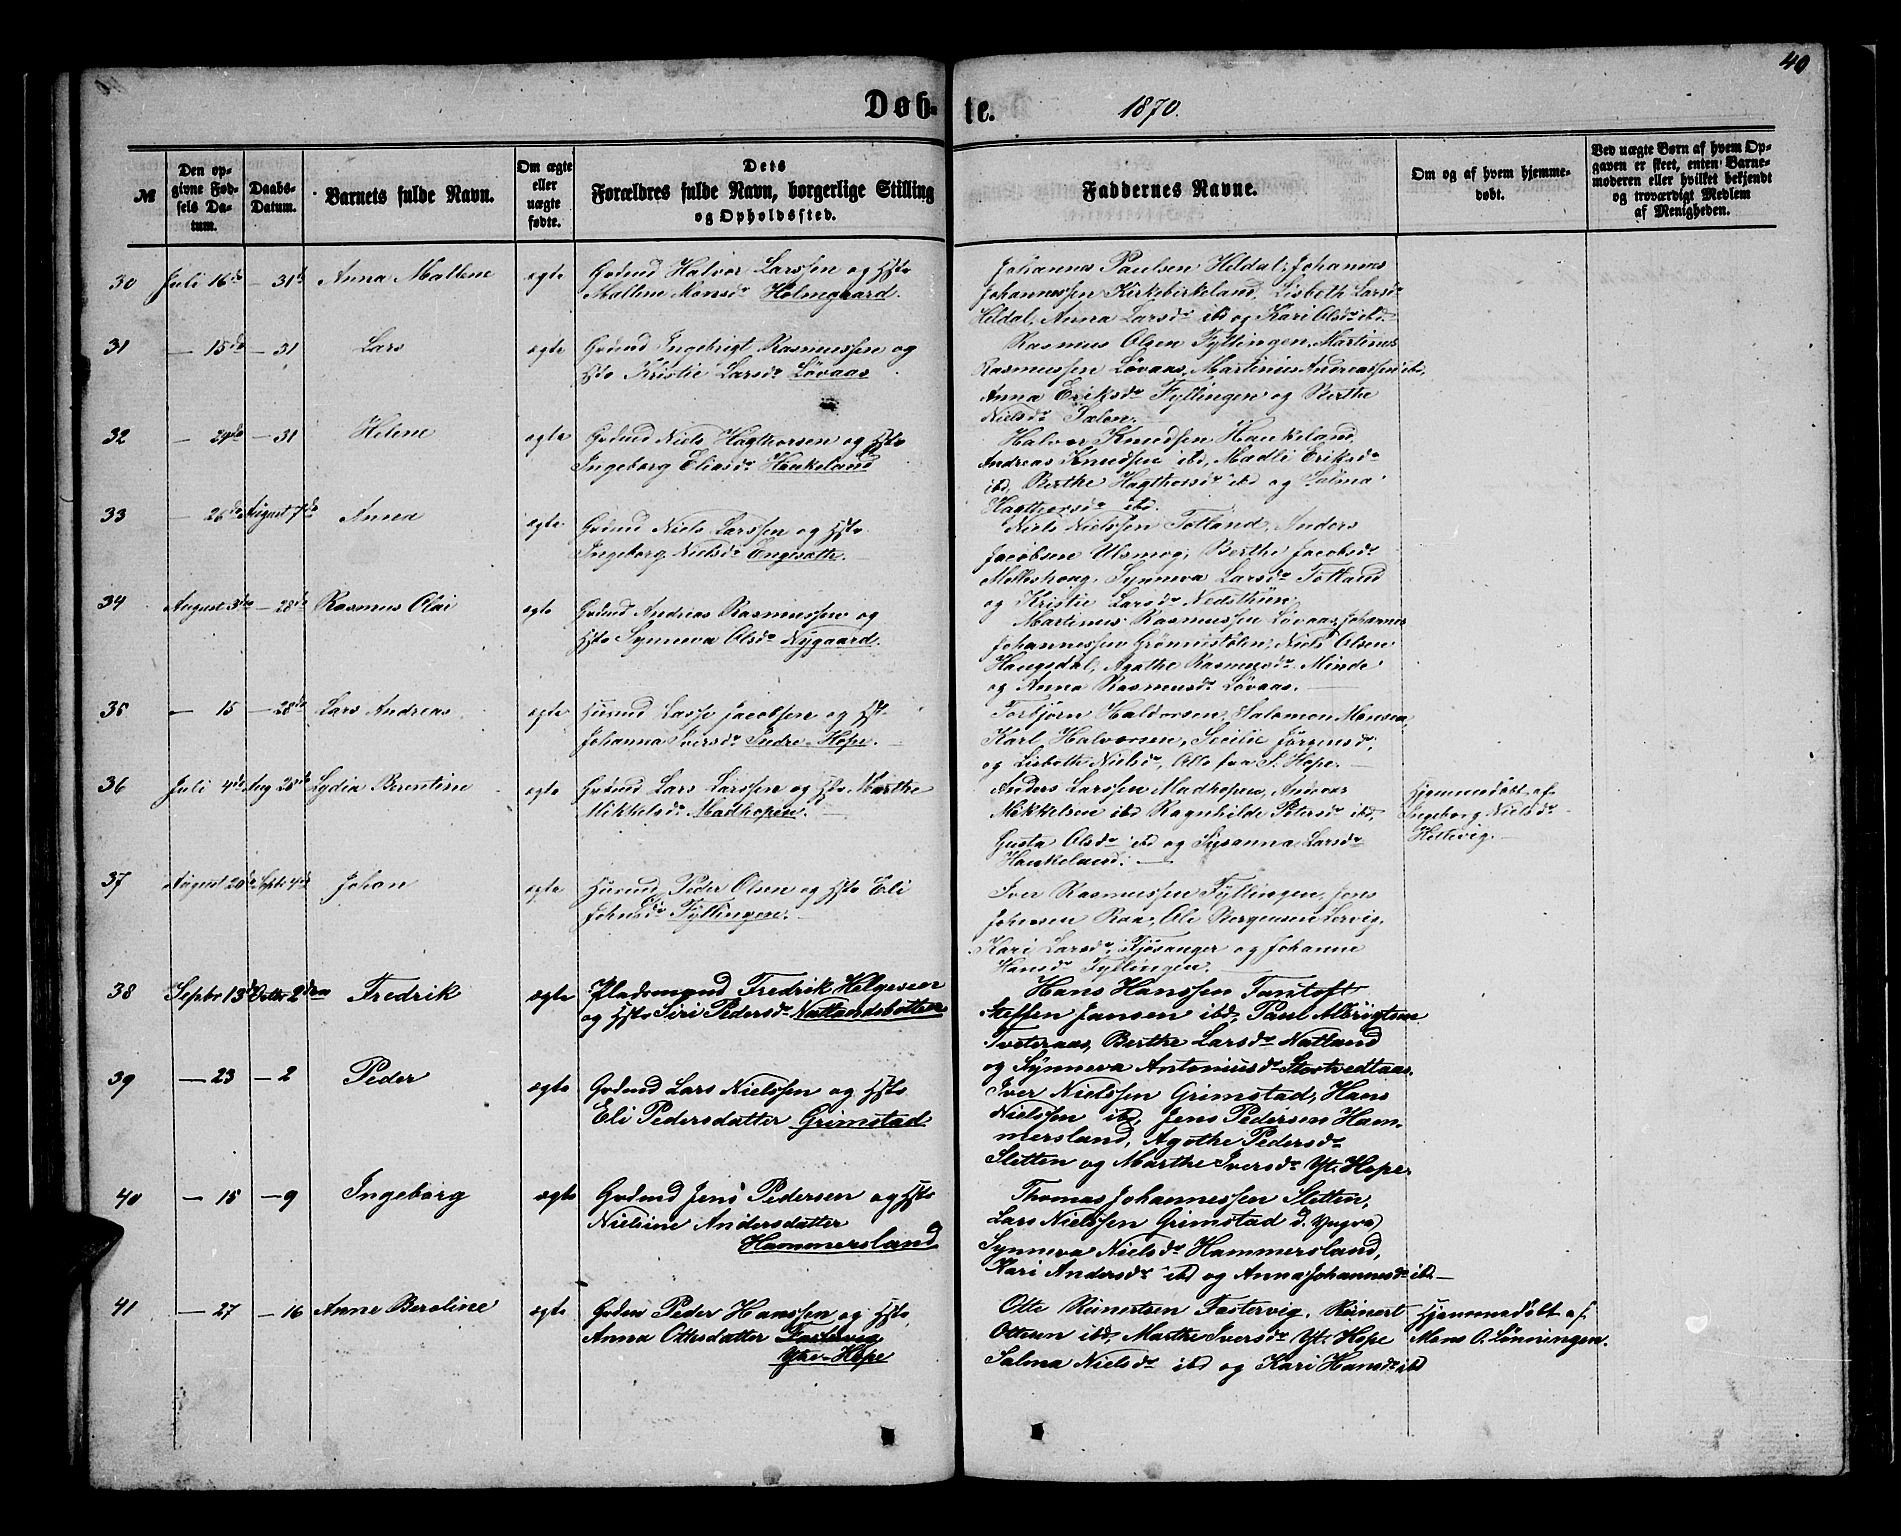 40
Døb- te. 1870.
№
Den opgivne Fødsels Datum.
Daabs-Datum.
Barnets fulde Navn.
Om ægte eller uægte fødte.
Dets Forældres fulde Navn, borgerlige Stilling og Opholdssted.
Faddernes Navne.
Om og af hvem hjemmedøbt.
Ved uægte Børn af hvem Opgaven er skeet, enten Barnemoderen eller hvilket bekjendt og troværdigt Medlem af Menigheden.
30 Juli 16de – 31te Anna Mallene ægte Grdmd Halvor Larssen og Hst
Mallene Monsdr Holmegaard.
Johannes Paulsen Heldal, Johannes
Johannessen Kirkebirkeland, Lisbeth Larsdr
Heldal, Anna Larsdr ibd og Kari Olsdr ibd
31 – 15de – 31 Lars ægte Grdmd Ingebrigt Rasmussen og
Hst Kristie Larsdr Løvaas
Rasmus Olsen Fyllingen, Martinus
Rasmussen Løvaas, Martinius Andreassen ibd,
Anna Eriksdr Fyllingen og Berthe
Nielsdr
32 – 24de – 31 Helene ægte Grdmd Niels Hagthorsen og Hst
Ingeborg Eliasdr Haukeland
Halvor Knudsen Haukeland,
Andreas Knudsen ibd, Madli Eriksdr
ibd, Berthe Hagthorsdr ibd og Salma
Hagthorsdr ibd.
33 – 26de August 7de Anna ægte Grdmd Niels Larssen og Hst
Ingeborg Nielsdr Engesætte.
Niels Nielssen Totland, Anders
Jacobsen Ulsmog, Berthe Jacobsdr
Mølleshoug, Synneva Larsdr Totland
og Kristie Larsdr Nedsthun.
34 August 3die – 28de Rasmus Olai ægte Grdmd Andreas Rasmussen og
Hst Synneva Olsdr Nygaard.
Martinus Rasmussen Løvaas, Johannes
Johannessen Grønnestølen, Niels Olsen
Haugsdal, Agathe Rasmusdr Minde
og Anna Rasmusdr Løvaas.
35 – 15 – 28de Lars Andreas ægte Husmd Lasse Jacobsen og Hst
Johanna Iversdr Indre-Hope.
Torbjørn Haldorsen, Salomon Monsen,
Karl Halvorsen, Secilie Jørgensdr,
og Lisbeth Nielsdr, Alle fra I. Hope.
36 Juli 4de Aug 28de Lydia Berentine ægte Grdmd Lars Larssen og Hst Marthe
Mikkelsdr Madhopen.
Anders Larssen Madhopen, Andreas
Mikkelsen ibd Ragnhilde Petersdr ibd,
Gusta Olsdr ibd og Susanna Larsdr
Haukeland.
Hjemmedøbt af
Ingeborg Nielsdr
Hellevig.
37 August 20de Septb 4de Johan ægte Husmd Peder Olsen og Hst Eli
Johnsdr Fyllingen.
Iver Rasmussen Fyllingen, Jens
Johnsen Raa, Ole Børgensen Lervig,
Kari Larsdr Fjøsanger og Johanne
Hansdr Fyllingen.
38 Septbr 13de Octbr 2den Fredrik ægte Pladsmand Fredrik Helgesen
og Hst Siri Pedersdr Natlandsbotten
Hans Hanssen Fantoft
Steffen Jansen ibd, Paul Albrigtsen
Tveteraas, Berthe Larsdr Natland
og Synneva Antoniusdr Storetvedtaas.
39 – 23 – 2 Peder ægte Grdmd Lars Nielssen og Hst
Eli Pedersdatter Grimstad
Iver Nielssen Grimstad, Hans
Nielssen ibd, Jens Pedersen Ham-
mersland, Agathe Pedersdr
Sletten og Marthe Iversdr Yt. Hope.
40 – 15 – 9 Ingeborg ægte Grdmd Jens Pedersen og Hst
Nielsine Andersdatter
Hammersland
Thomas Johannessen Sletten,
Lars Nielssen Grimstad d. Yngre,
Synneva Nielsdr Hammersland,
Kari Andersdr ibd og Anna Johannesdr ibd.
41 – 27 – 16 Anne Beroline ægte Grdm Peder Hanssen og Hst
Anna Ottesdatter Fastervig
Ytre-Hope
Otte Reinertsen Fastervig, Reinert
Ottesen ibd, Marthe Iversdr Yt. Hope
Salma Nielsdr ibd og Kari Hansdr ibd
Hjemmedøbt af
Mons O. Lønningen.